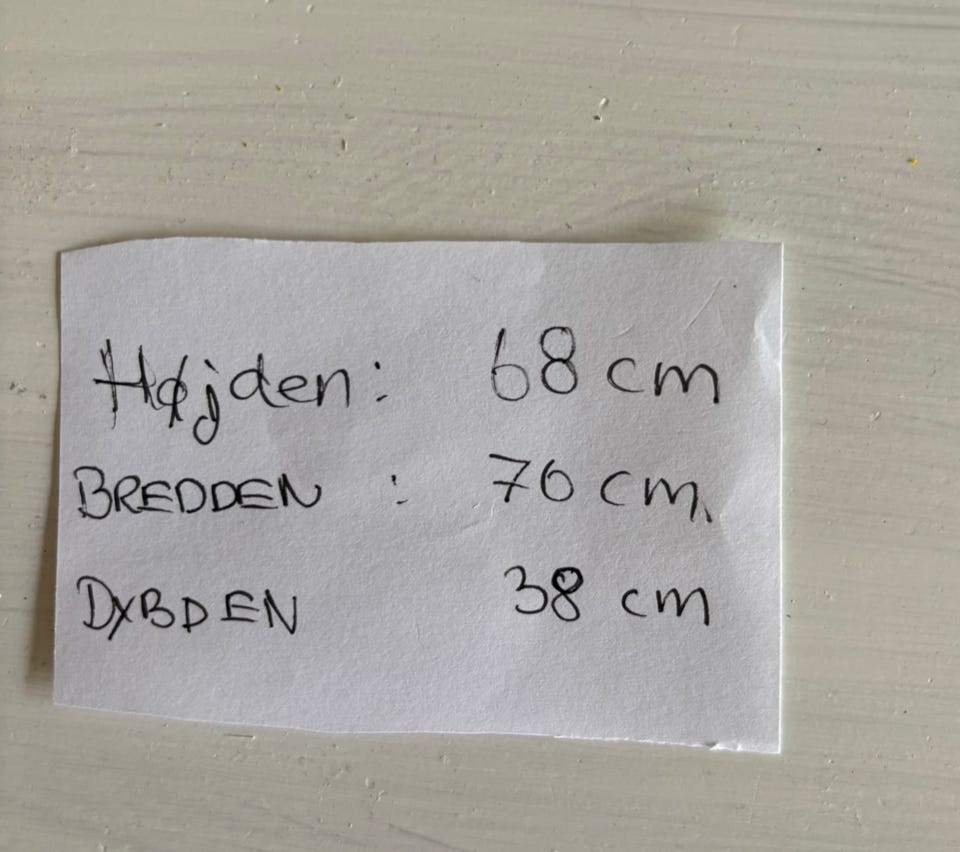 Højden: 68 cm
BREDDEN : 76 cm
DYBDEN 38 cm